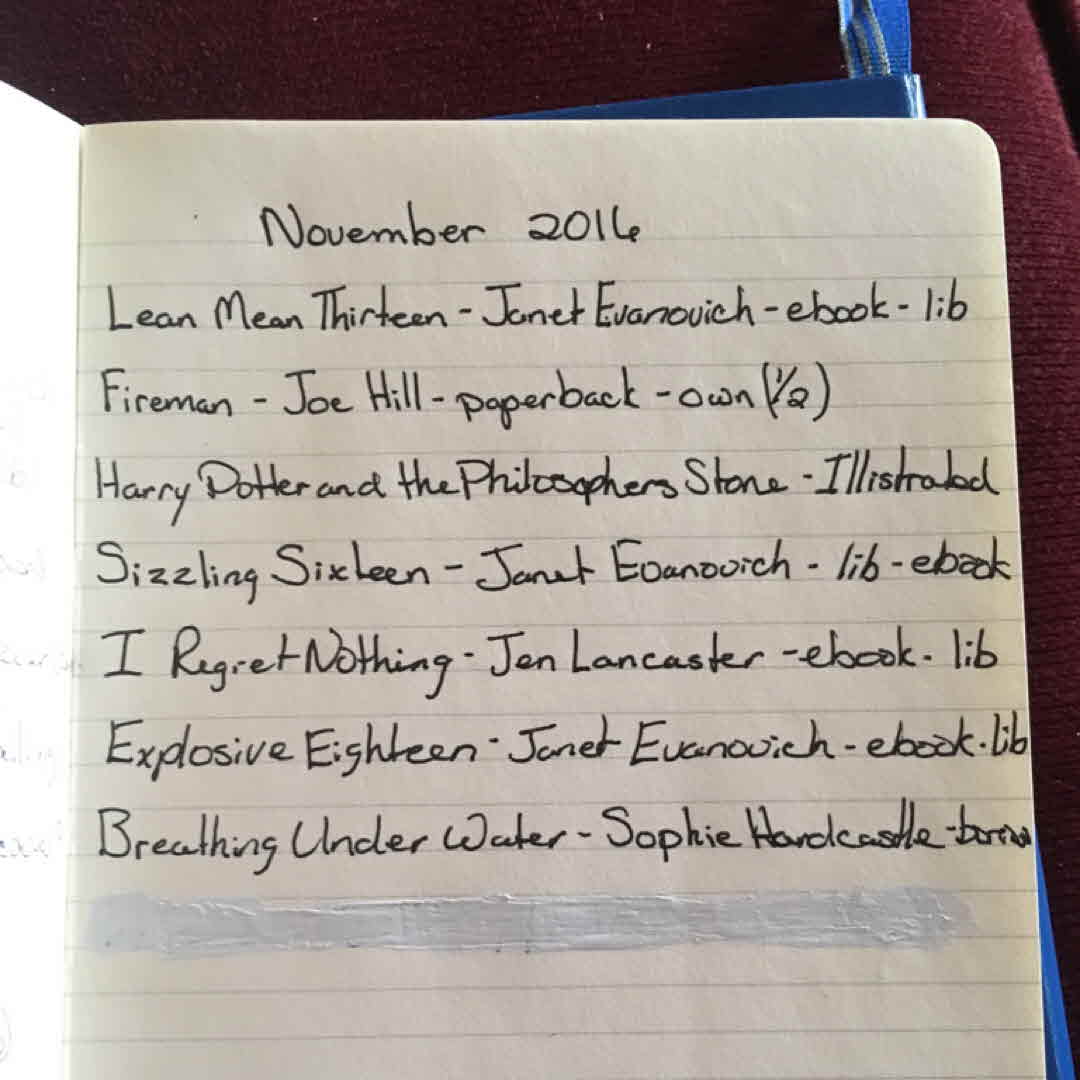 November 2016
Lean Mean Thirteen - Janet Evanovich - ebook - lib
Fireman - Joe Hill - paperback - own (1/2)
Harry Potter and the Philosophers Stone - Illistrated
Sizzling Sixteen - Janet Evanovich - lib - ebook
I Regret Nothing - Jen Lancaster - ebook - lib
Explosive Eighteen - Janet Evanovich - ebook - lib
Breathing Under Water - Sophie Hardcastle -